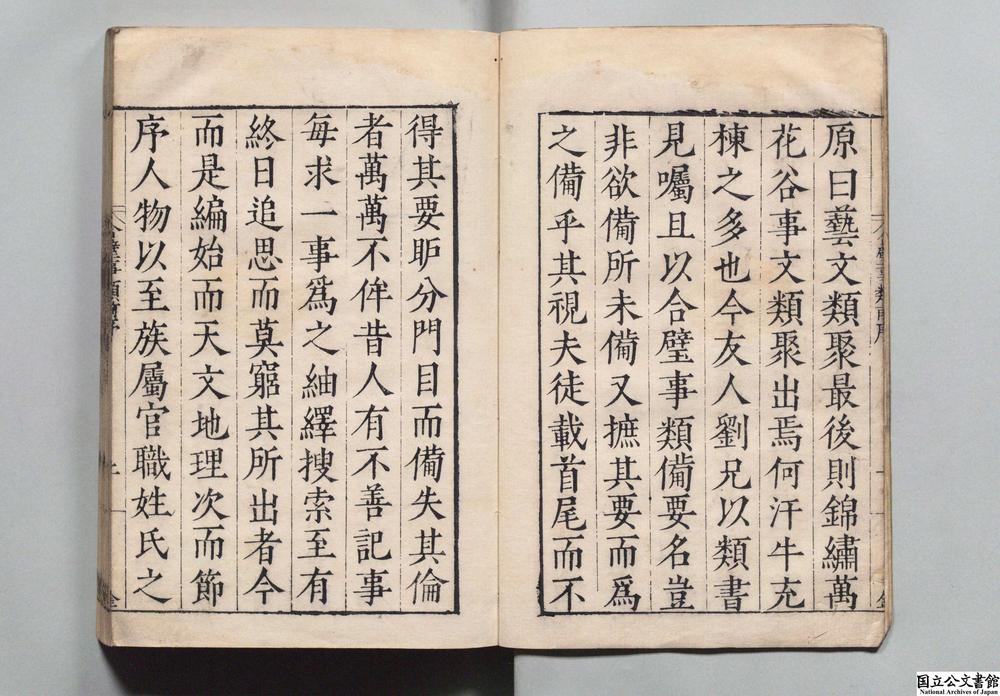 原曰藝文類聚最後則錦繡萬
花谷事文類聚出焉何汗牛充
棟之多也今友人劉兄以類書
見囑且以合璧事類備要名豈
非欲備所未備又摭其要而爲
之備乎其視夫徒載首尾而不
得其要眎分門目而備失其倫
者萬萬不侔昔人有不善記事
每求一事爲之紬繹搜索至有
終日追思而莫窮其所出者今
而是編始而天文地理次而節
序人物以至族屬官職姓氏之
国立公文書館
National Archives of Japan